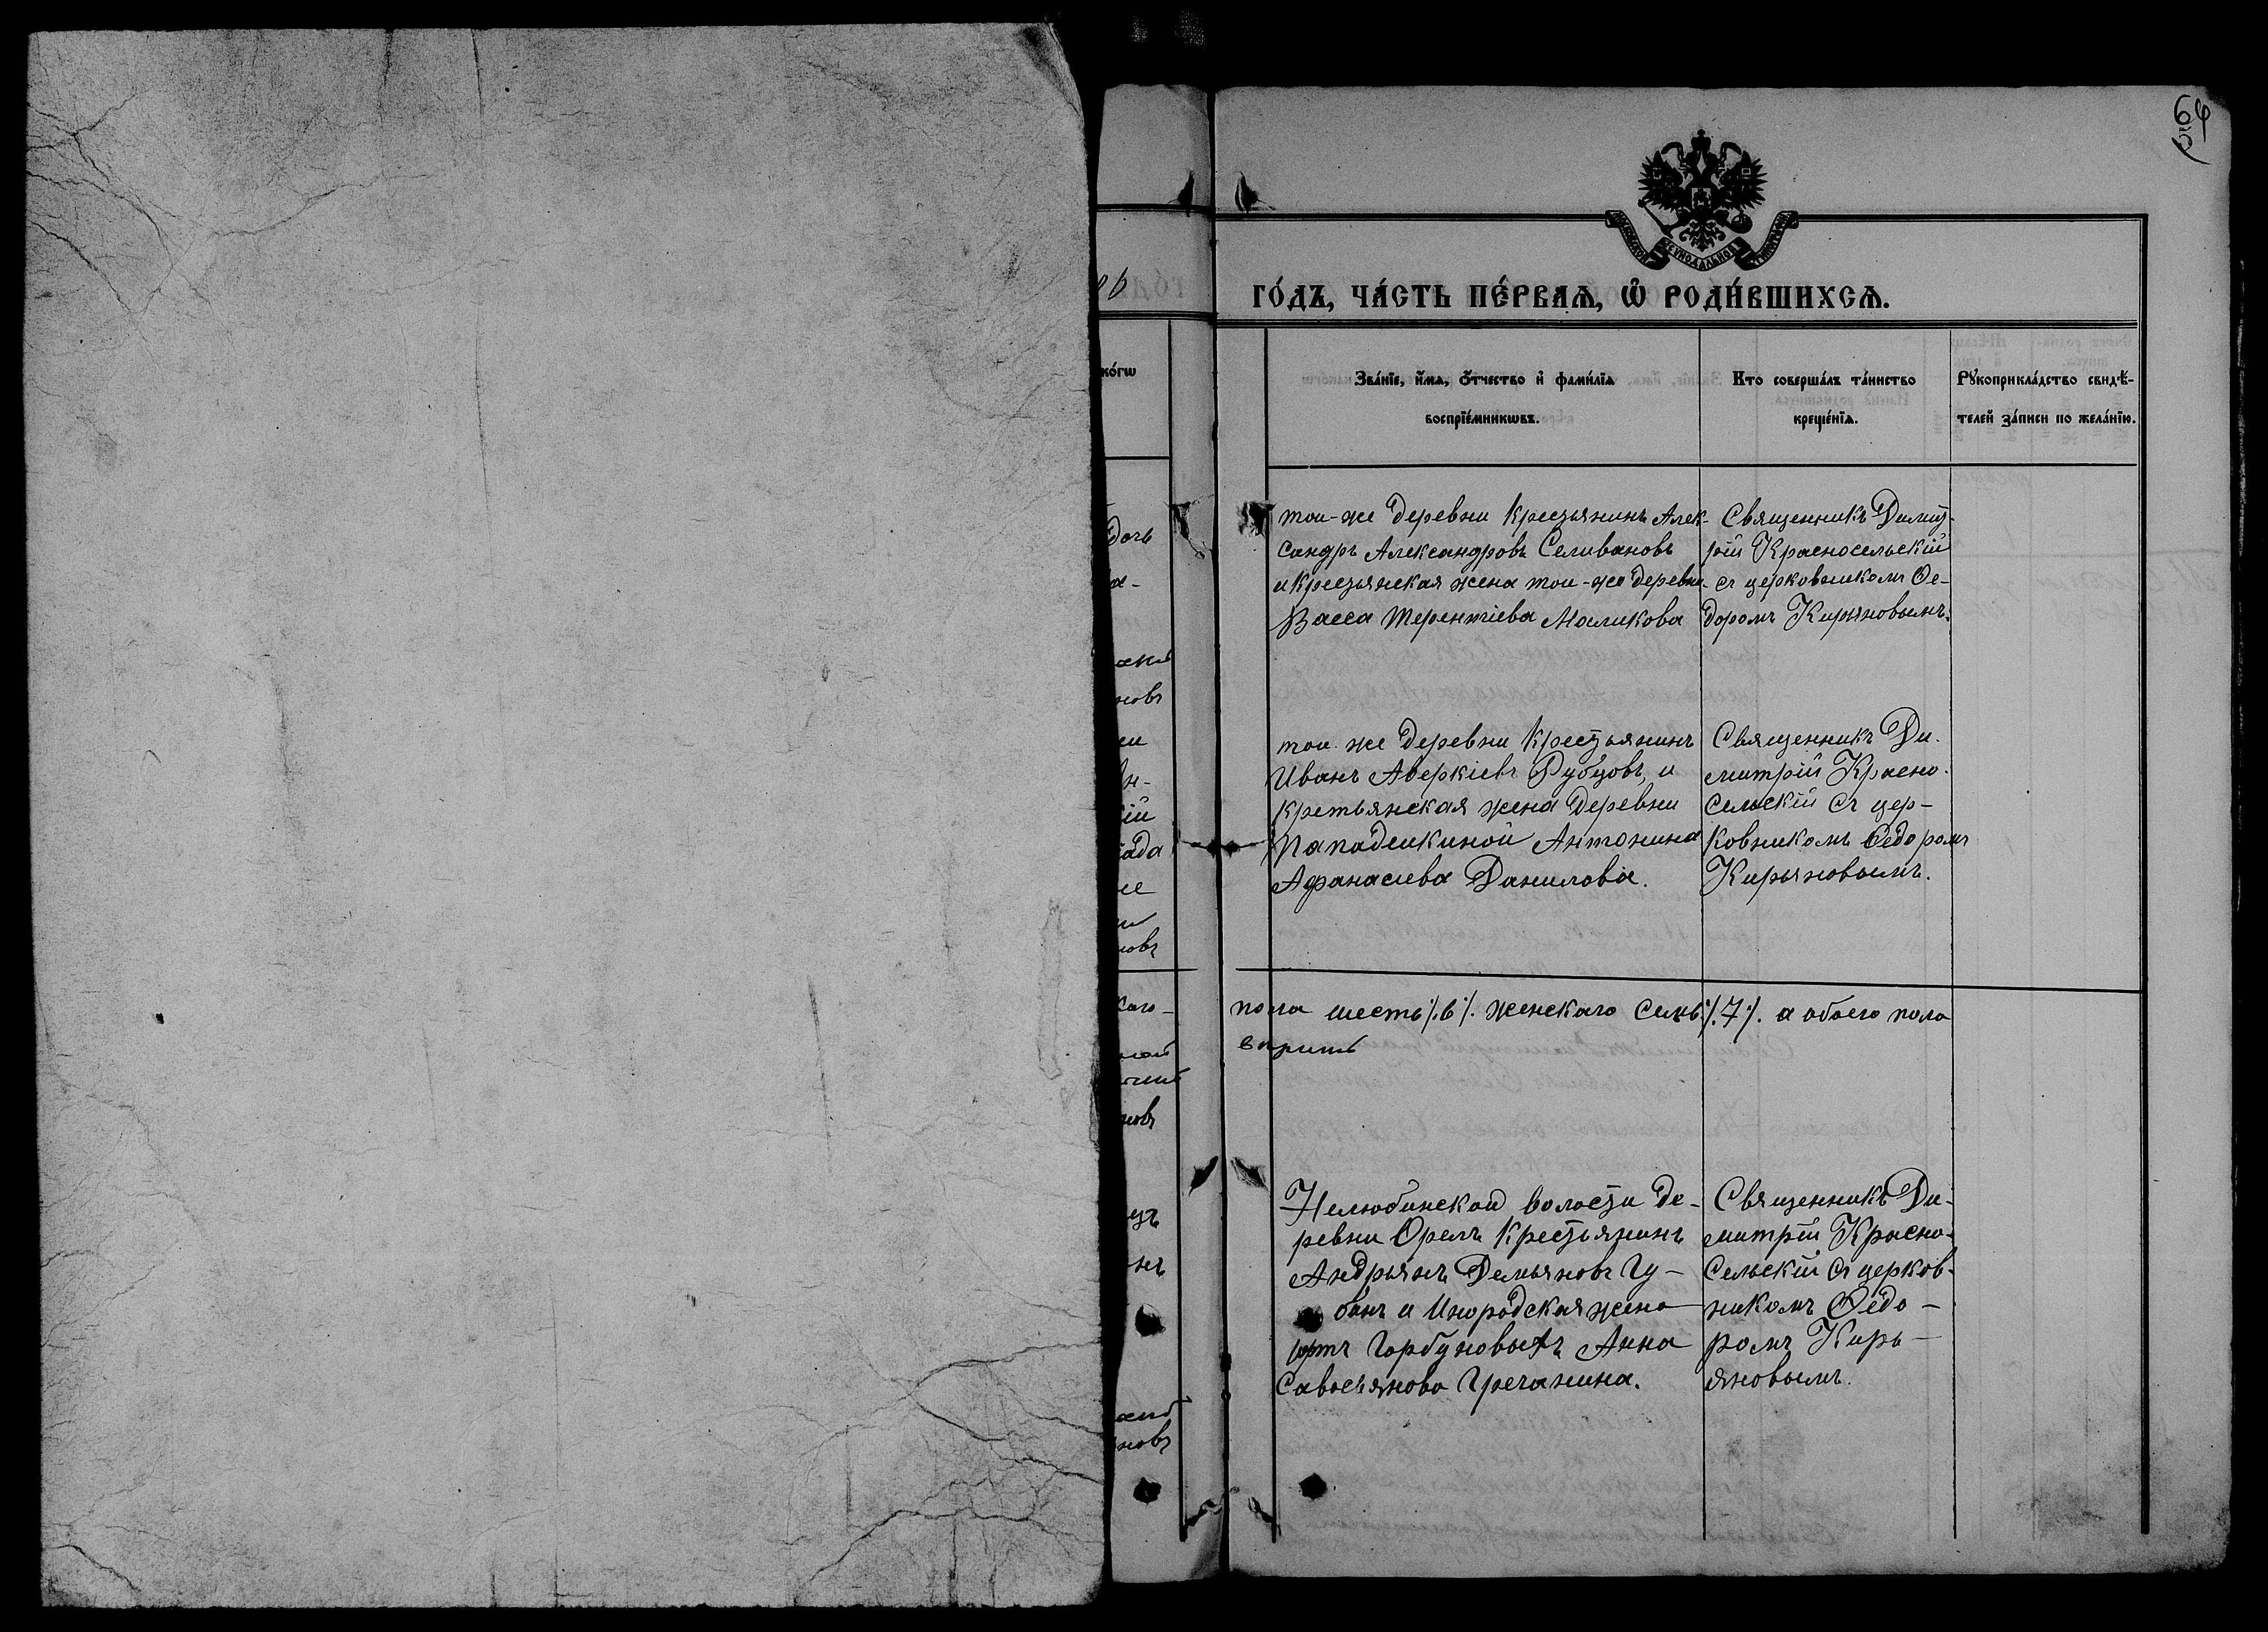 64
МОСКОВСКОЙ СѴНОДАЛЬНОЙ ТИПОГРАФІИ
ГО́ДЪ, ЧА́СТЬ ПЕ́РВАѦ, Ѽ РОДИ́ВШИХСѦ.
Зва́нїе, и҆́мѧ, ѻ҆́тчество и҆ фами́лїѧ
воспрїе́мникѡвъ.
Кто̀ соверша́лъ та́инство
креще́нїѧ.
Рꙋкоприкла́дство свидѣ́-
телей за́писи по жела́нїю.
кѡ́гѡ
той-же деревни крестьянинъ Алек-
сандръ Александровъ Селивановъ
и крестьянская жена той-же деревни
Васса Терентіева Маликова
Священникъ Димит-
рій Красносельскій
съ церковникомъ Ѳе-
доромъ Кирьяновымъ.
той же деревни крестьянинъ
Иванъ Аверкіевъ Рубцовъ, и
кретьянская жена деревни
Пападейкиной Антонина
Афанасиева Данилова.
Священникъ Ди-
митрій Красно-
сельскій съ цер-
ковникомъ Ѳедоромъ
Кирьяновымъ.
пола шесть /.6./ женскаго семь /.7./. а обоего пола
Нелюбинской волости де-
ревни Орелъ крестьянинъ
Андрьянъ Демьяновъ Гу-
банъ и Инородская жена
юртъ Горбуновыхъ Анна
Савосьянова Гречанина.
Священникъ Ди-
митрій Красно-
сельскій съ церков-
никомъ Ѳедо-
ромъ Кирь-
яновымъ.